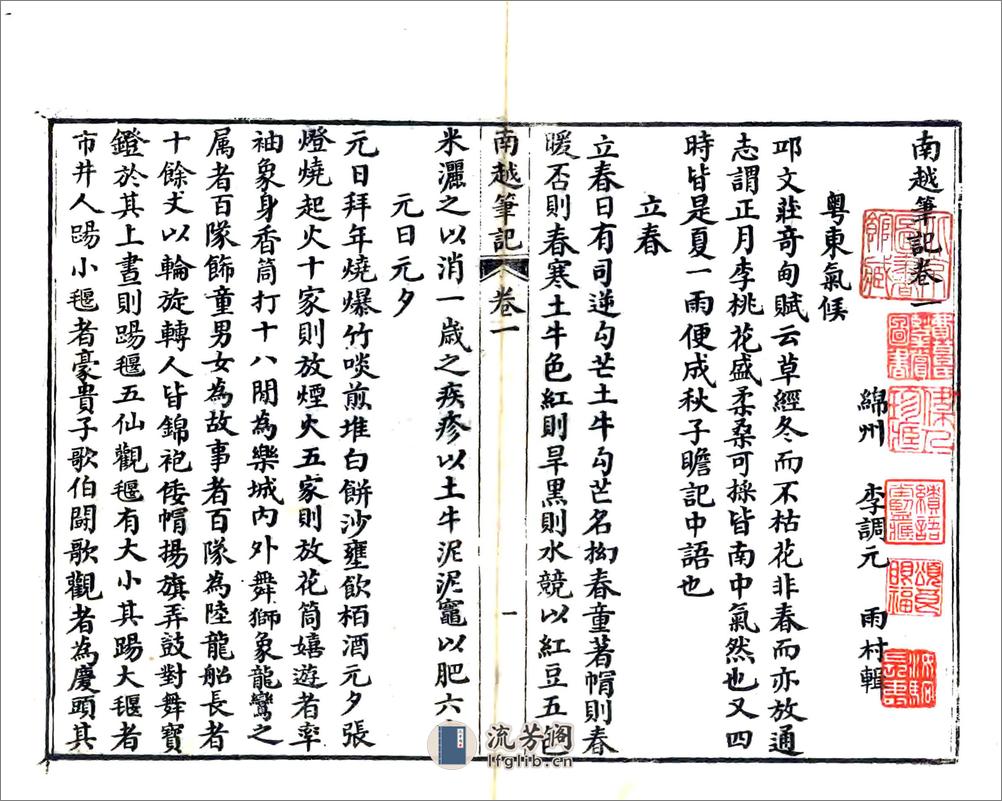 南越筆記卷一
綿州 李調元 雨村輯
粵東氣候
邱文莊奇甸賦云草經冬而不枯花非春而亦放通
志謂正月李桃花盛柔桑可採皆南中氣然也又四
時皆是夏一雨便成秋子瞻記中語也
立春
立春日有司逆勾芒土牛勾芒名拗春童著帽則春
暖否則春寒土牛色紅則旱黑則水競以紅豆五色
南越筆記 卷一 一
米灑之以消一歲之疾疹以土牛泥泥竈以肥六
元日元夕
元日拜年燒爆竹啖煎堆白餅沙壅飲栢酒元夕張
燈燒起火十家則放煙火五家則放花筒嬉遊者率
袖象身香筒打十八閒為樂城內外舞獅象龍鸞之
属者百隊飾童男女為故事者百隊為陸龍船長者
十餘丈以輪旋轉人皆錦袍倭帽揚旗弄鼓對舞寶
鐙於其上晝則踼毽五仙觀毽有大小其踼大毽者
市井人踼小毽者豪貴子歌伯鬪歌觀者為慶頭其
流芳阁
lfglib.cn